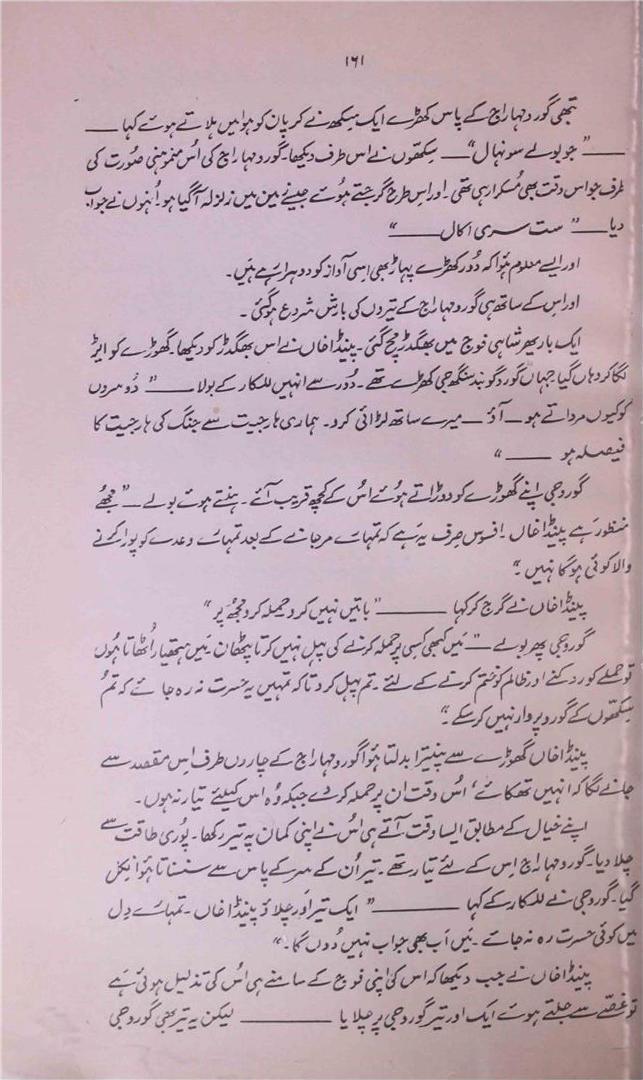 ۱۶۱
تبھی گورو مہاراج کے پاس کھڑے ایک سِکھ نے کرپان کو ہوا میں ہلاتے ہوئے کہا ـــــ
ـــــ ”جو بولے سو نہال“ ـــــ سِکھوں نے اس طرف دیکھا۔ گورو مہاراج کی اُس منموہنی صورت کی
طرف جو اس وقت بھی مُسکرا رہی تھی۔ اور اس طرح گرجتے ہوُئے جیسے زمین میں زلزلہ آگیا ہو! اُنہوں نے جواب
دیا ـــــ ”ست سری اکال ـــــ“
اور ایسے معلوم ہوُا کہ دُور کھڑے پہاڑ بھی اسی آواز کو دوہرا رہے ہیں۔
اور اس کے ساتھ ہی گورو مہاراج کے تیروں کی بارش شروع ہوگئی۔
ایک بار پھر شاہی فوج میں بھگدڑ مچ گئی۔ پینڈا خاں نے اس بھگدڑ کو دیکھا۔ گھوڑے کو ایڑ
لگا کر وہاں گیا جہاں گورو گوبند سنگھ جی کھڑے تھے۔ دُور سے انہیں للکار کے بولا ـــــ ”دُوسروں
کو کیوں مرواتے ہو ـــ آؤ ـــ میرے ساتھ لڑائی کرو۔ ہماری ہار جیت سے جنگ کی ہار جیت کا
فیصلہ ہو ـــــ“
گورو جی اپنے گھوڑے کو دوڑاتے ہوُئے اس کے کچھ قریب آئے۔ ہنستے ہوئے بولے ـــ ”مجھے
منظور ہے پینڈا خاں۔ افسوس صِرف یہ ہے کہ تمہارے مر جانے کے بعد تمہارے وعدے کو پورا کرنے
والا کوئی ہوگا نہیں۔“
پینڈا خاں نے گرج کر کہا ـــــ ”باتیں نہیں کرو حملہ کرو مُجھ پر“
گورو جی پھر بولے ـــ ”مَیں کبھی کسی پر حملہ کرنے کی پہل نہیں کرتا پٹھان۔ مَیں ہتھیار اُٹھاتا ہوُں
تو حملے کو روکنے اور ظالم کو ختم کرنے کے لئے۔ تم پہل کرو تا کہ تمہیں یہ حسرت نہ رہ جائے کہ تمُ
سِکھّوں کے گورو پر وار نہیں کر سکے۔“
پینڈا خاں گھوڑے سے پینترا بدلتا ہوُا گورو مہاراج کے چاروں طرف اِس مقصد سے
جانے لگا کہ انہیں تھکائے، اُس وقت ان پر حملہ کردے جبکہ وُہ اس کیلئے تیار نہ ہوں۔
اپنے خیال کے مطابق ایسا وقت آتے ہی اُس نے اپنی کمان پہ تیر رکھا۔ پوُری طاقت سے
چلا دیا۔ گورو مہاراج اس کے لئے تیار تھے۔ تیر اُن کے سر کے پاس سے سنسناتا ہوُا نِکل
گیا۔ گورو جی نے للکار کے کہا ـــــ ”ایک تیر اور چلاؤ پینڈا خاں۔ تمہارے دِل
میں کوئی حسرت رہ نہ جائے۔ مَیں اب بھی جواب نہیں دوُں گا۔“
پینڈا خاں نے جب دیکھا کہ اس کی اپنی فوج کے سامنے ہی اُس کی تذلیل ہوئی ہے
تو غصّے سے جلتے ہوُئے ایک اور تیر گورو جی پر چلایا ـــــ لیکن یہ تیر بھی گورو جی